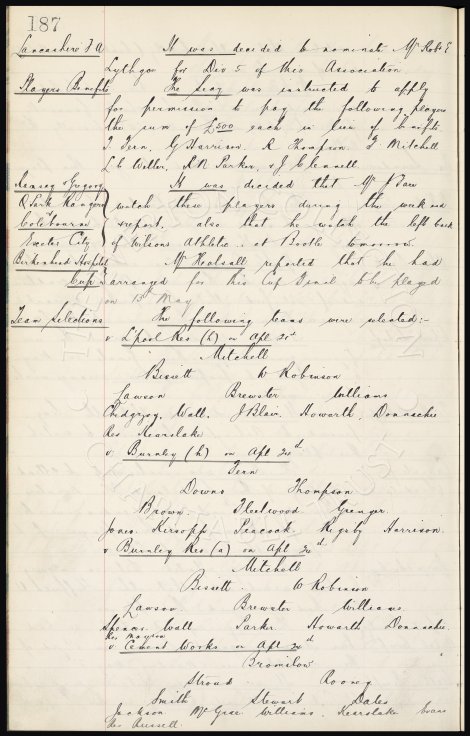 187
Lancashire F A It was decided to nominate Mr Robt E
Lythgoe for Div 5 of this Association
Players Benefits The Secy was instructed to apply
for permission to pay the following players
the sum of £500 each in lieu of benefits
T Fern, G Harrison, R Thompson, F Mitchell
L C Weller, R N Parker, & J Clennell
It was decided that Mr
& Gregory
Q Park Rangers watch these players during the week and
report, also that he watch the left back
Exeter City of Wilsons Athletic at Bootle tomorrow.
Birkenhead Hospital Mr Healsall reported that he had
Cup arranged for this Cup Final to be played
on 13 May
Team Selections The following teams were selected:-
v L'pool Res (h) on Apl 21st
Mitchell
Bissett W Robinson
Lawson Brewster Williams
Chedgzoy, Wall, J Blair, Howarth, Donnachie
Res Kearslake
v Burnley (h) on Apl
Fern
Downs Thompson
Brown Fleetwood Grenyer
Jones Kirsopp Peacock Rigsby Harrison
v Burnley Res (a) on Apl
Mitchell
Bissett W Robinson
Lawson Brewster Williams
Spencer Wall Parker Howarth Donnachie
Res
v Cement Works on Apl
Bromilow
Stroud Rooney
Smith Stewart Dates
Jackson McGrae Williams Kearslake Evans
Res Russell